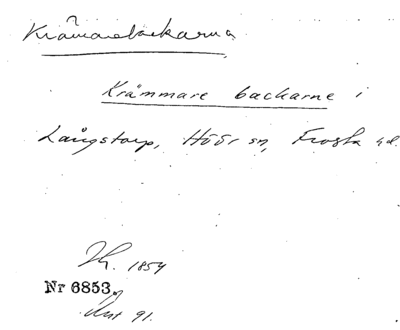 Krämarebackarna
Krämmare backarne i
Långstorp, Höör sn, Frosta hd.
1854
Nr 6853.
Ant 91.